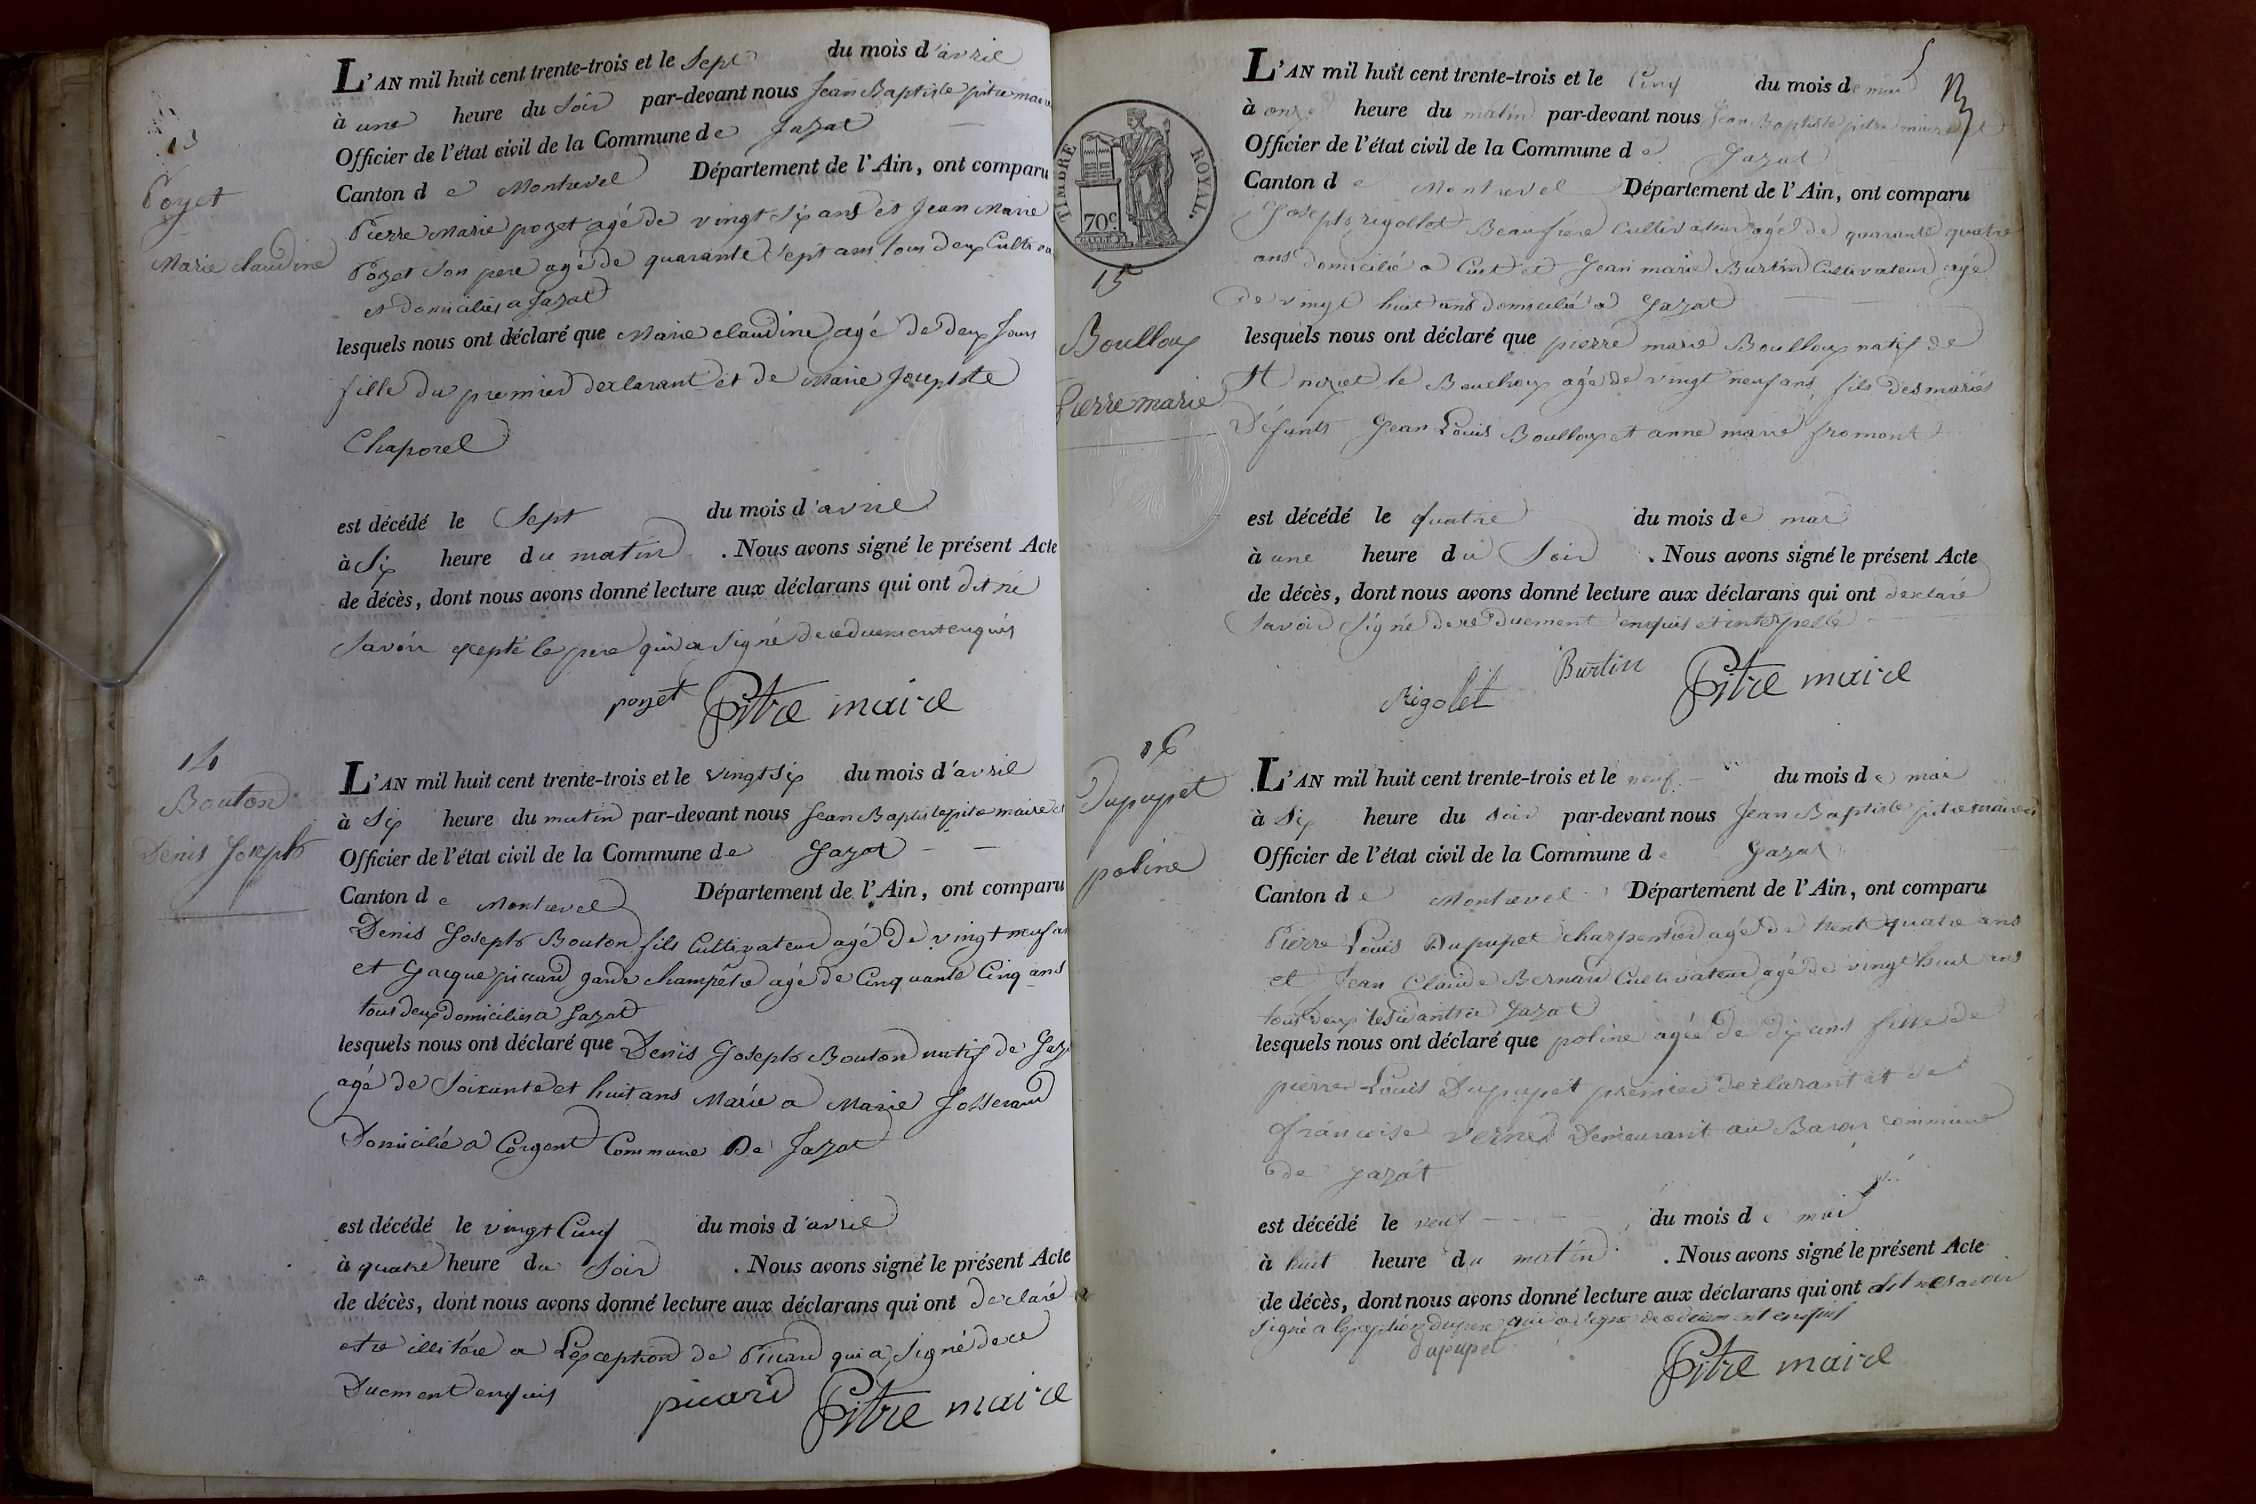 13
Poyet
Marie claudine
L'AN mil huit cent trente-trois et le Sept du mois d'avril
à une heure du Soir par-devant nous Jean Baptiste pitre maire
Officier de l'état civil de la Commune de Jazat
Canton de Montrevel Département de l'Ain, ont comparu
Pierre Marie poyet agé de vingt Six ans et Jean Marie
Poyet Son pere agé de quarante Sept ans tous deux
et domiciliés a Jazat
lesquels nous ont déclaré que Marie claudine agé de deux Jours
fille du premier declarant et de Marie Josephte
Chaporel
est décédé le Sept du mois d'avril
à Six heure du matin . Nous avons signé le présent Acte
de décès, dont nous avons donné lecture aux déclarans qui ont dit ne
Savoir excepté le pere qui a Signé de ce duement enquis
poyet Pitre maire
14
Bouton
Denis Joseph
L'AN mil huit cent trente-trois et le vingt Six du mois d'avril
à Six heure du matin par-devant nous Jean Baptiste pitre maire et
Officier de l'état civil de la Commune de Jazat
Canton de Montrevel Département de l'Ain, ont comparu
Denis Joseph Bouton fils Cultivateur agé de vingt neuf
et Jacque picard garde champêtre agé de Cinquante Cinq ans
tous deux domiciliés a Jazat
lesquels nous ont déclaré que Denis Joseph Bouton natif de
agé de Soixante et huit ans Marié a Marie Josserand
Domicilié a Corgent Commune De Jazat
est décédé le vingt Cinq du mois d'avril
à quatre heure du Soir . Nous avons signé le présent Acte
de décès, dont nous avons donné lecture aux déclarans qui ont declaré
etre illitére a Lexception de Picard qui a Signé de ce
Duement enquis picard Pitre maire
TIMBRE ROYAL.
70c.
15
Boulloux
Pierre marie
L'AN mil huit cent trente-trois et le Cinq du mois de mai
à onze heure du matin par-devant nous Jean Baptiste pitre maire et
Officier de l'état civil de la Commune de Jazat
Canton de Montrevel Département de l'Ain, ont comparu
Joseph rigollet Beaufrere Cultivateur agé de quarante quatre
ans domicilié a Curt et Jean marie Burtin Cultivateur agé
de vingt huit ans domicilié a Jazat
lesquels nous ont déclaré que pierre marie Boulloux natif de
St niziet le Bouchoux agé de vingt neuf ans, fils des mariés
Défunts Jean Louis Boulloux et anne marie fromont
est décédé le quatre du mois de mai
à une heure du Soir . Nous avons signé le présent Acte
de décès, dont nous avons donné lecture aux déclarans qui ont declaré
Savoir Signé de ce duement enquis et interpellé
Rigolet Burtin Pitre maire
16
Dupupet
poline
L'AN mil huit cent trente-trois et le neuf du mois de mai
à Six heure du soir par-devant nous Jean Baptiste pitre maire
Officier de l'état civil de la Commune de Jazat
Canton de Montrevel Département de l'Ain, ont comparu
Pierre Louis Dupupet charpentier agé de trent quatre ans
et Jean Claude Bernard Cultivateur agé de vingt huit ans
tous deux residants a Jazat
lesquels nous ont déclaré que poline agée de dix ans fille de
pierre Louis Dupupet premier declarant et de
francoise verne Demeurant au Baron commune
de Jazat
est décédé le neuf du mois de mai
à huit heure du matin . Nous avons signé le présent Acte
de décès, dont nous avons donné lecture aux déclarans qui ont dit ne savoir
Signé a lexception du pere qui a signé de ce duement enquis
Dupupet Pitre maire